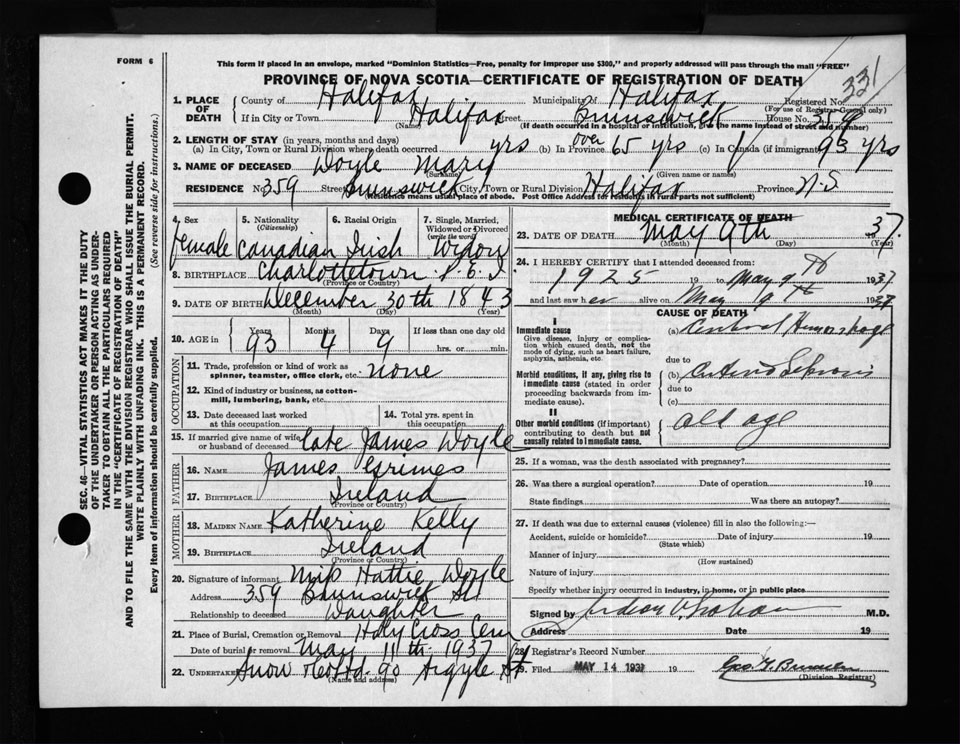 FORM 6
This form if placed in an envelope, marked "Dominion Statistics—Free, penalty for improper use $300," and properly addressed will pass through the mail "FREE"
PROVINCE OF NOVA SCOTIA—CERTIFICATE OF REGISTRATION OF DEATH
331
1. PLACE OF DEATH
County of Halifax Municipality of Halifax Registered No.
(For use of Registrar General only)
If in City or Town Halifax Street Brunswick House No. 359
(Name) (If death occurred in a hospital or institution, give the name instead of street and number)
2. LENGTH OF STAY (in years, months and days)
(a) In City, Town or Rural Division where death occurred yrs (b) In Province over 65 yrs (c) In Canada (if immigrant) 93 yrs
3. NAME OF DECEASED Doyle Mary
(Surname) (Given name or names)
RESIDENCE No. 359 Street Brunswick City, Town or Rural Division Halifax Province N.S.
(Residence means usual place of abode. Post Office Address for residents in rural parts not sufficient)
4. Sex female
5. Nationality (Citizenship) Canadian
6. Racial Origin Irish
7. Single, Married, Widowed or Divorced (write the word) Widow
8. BIRTHPLACE Charlottetown P.E.I
(Province or Country)
9. DATE OF BIRTH December 30th 1843
(Month) (Day) (Year)
10. AGE in Years 93 Months 4 Days 9 If less than one day old hrs. or min.
OCCUPATION
11. Trade, profession or kind of work as spinner, teamster, office clerk, etc. none
12. Kind of industry or business, as cotton-mill, lumbering, bank, etc.
13. Date deceased last worked at this occupation
14. Total yrs. spent in this occupation
15. If married give name of wife or husband of deceased Late James Doyle
FATHER
16. NAME James Grimes
17. BIRTHPLACE Ireland
(Province or Country)
MOTHER
18. MAIDEN NAME Katherine Kelly
19. BIRTHPLACE Ireland
(Province or Country)
20. Signature of informant Miss Hattie Doyle
Address 359 Brunswick St
Relationship to deceased Daughter
21. Place of Burial, Cremation or Removal Holy Cross Cem
Date of burial or removal May 11th 1937
22. UNDERTAKER Snow & Co Ltd 90 Argyle St
(Name and address)
MEDICAL CERTIFICATE OF DEATH
23. DATE OF DEATH May 9th 1937.
(Month) (Day) (Year)
24. I HEREBY CERTIFY that I attended deceased from:
1925 19 to May 9th 1937
and last saw her alive on May 9th 1937
CAUSE OF DEATH
I
Immediate cause
Give disease, injury or complication which caused death, not the mode of dying, such as heart failure, asphyxia, asthenia, etc.
(a) Cerebral Hemorrhage
due to
Morbid conditions, if any, giving rise to immediate cause (stated in order proceeding backwards from immediate cause).
(b) Arterio Sclerosis
due to
(c)
II
Other morbid conditions (if important) contributing to death but not causally related to immediate cause.
old age
25. If a woman, was the death associated with pregnancy?
26. Was there a surgical operation? Date of operation 19
State findings Was there an autopsy?
27. If death was due to external causes (violence) fill in also the following:—
Accident, suicide or homicide? Date of injury 19
(State which)
Manner of injury
(How sustained)
Nature of injury
Specify whether injury occurred in industry, in home, or in public place
Signed by M.D.
Address Date 19
28. Registrar's Record Number
29. Filed MAY 14 1937 19
(Division Registrar)
SEC. 46—VITAL STATISTICS ACT MAKES IT THE DUTY
OF THE UNDERTAKER OR PERSON ACTING AS UNDER-
TAKER TO OBTAIN ALL THE PARTICULARS REQUIRED
IN THE "CERTIFICATE OF REGISTRATION OF DEATH"
AND TO FILE THE SAME WITH THE DIVISION REGISTRAR WHO SHALL ISSUE THE BURIAL PERMIT.
WRITE PLAINLY WITH UNFADING INK. THIS IS A PERMANENT RECORD.
Every item of information should be carefully supplied. (See reverse side for instructions.)